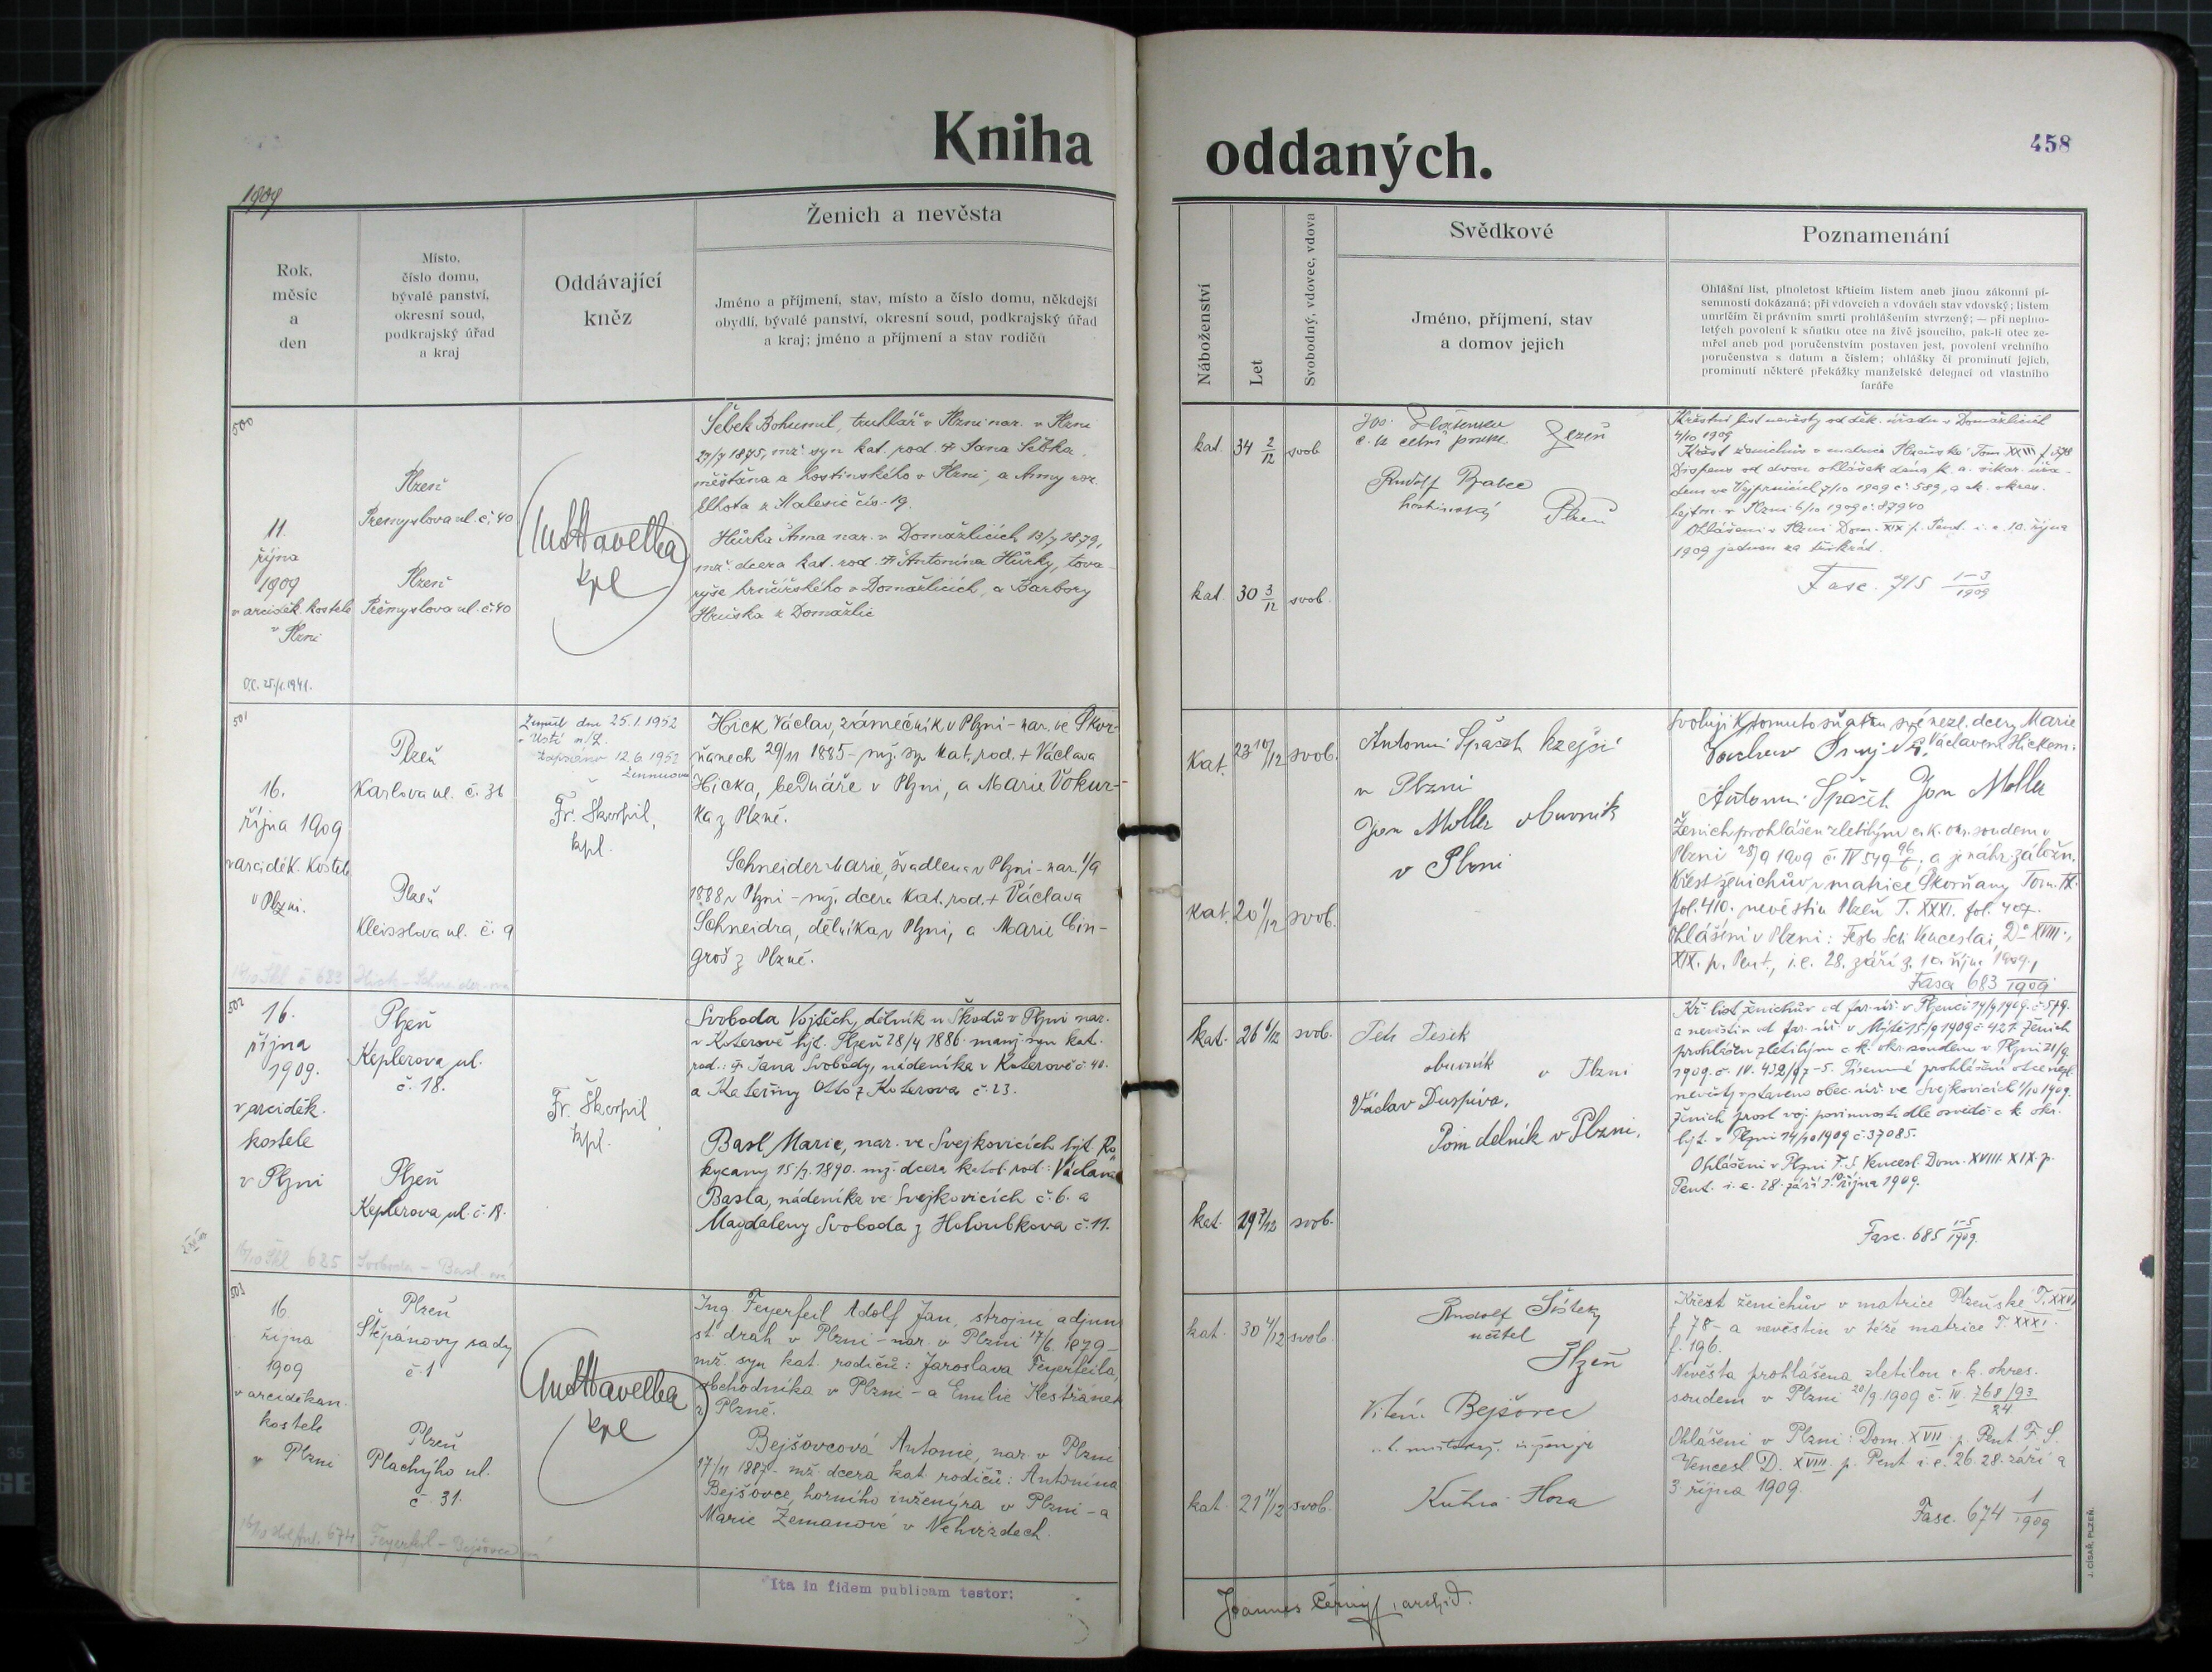 Kniha oddaných.
458
1909
Rok,
měsíc
a
den
Místo,
číslo domu,
bývalé panství,
okresní soud,
podkrajský úřad
a kraj
Oddávající
kněz
Ženich a nevěsta
Jméno a příjmení, stav, místo a číslo domu, někdejší
obydlí, bývalé panství, okresní soud, podkrajský úřad
a kraj; jméno a příjmení a stav rodičů
Náboženství
Let
Svobodný, vdovec, vdova
Svědkové
Jméno, příjmení, stav
a domov jejich
Poznamenání
Ohlášní list, plnoletost křticím listem aneb jinou zákonní pí-
semností dokázaná; při vdovcích a vdovách stav vdovský; listem
umrlčím či právním smrti prohlášením stvrzený; — při neplno-
letých povolení k sňatku otce na živě jsoucího, pak-li otec ze-
mřel aneb pod poručenstvím postaven jest, povolení vrchního
poručenstva s datum a číslem; ohlášky či prominutí jejich,
prominutí některé překážky manželské delegací od vlastního
faráře
500
11.
října
1909
v arciděk. kostele
v Plzni
Plzeň
Přemyslova ul. č. 40
Plzeň
Přemyslova ul. č. 40
kpl
Šebek Bohumil, truhlář v Plzni nar. v Plzni
27/7 1875, mž. syn kat. rod. † Jana Šebka,
měšťana a hostinského v Plzni, a Anny roz.
Lhota z Malesic čís. 19.
Hůrka Anna nar. v Domažlicích 13/7 1879,
mž. dcera kat. rod. † Antonína Hůrky, tova-
ryše hrnčířského v Domažlicích, a Barbory
Hruška z Domažlic
kat. 34 2/12 svob
kat. 30 3/12 svob.
Rudolf
hostinský Plzeň
Křestní list nevěsty od děk. úřadu v Domažlicích
4/10 1909
Křest ženichův v matrice Plzeňské Tom. XXIII f. 378
Dispens od dvou ohlášek dána k. a. vikar. úřa-
dem ve Vejprnicích 7/10 1909 č. 589, a ck. okres.
hejtm. v Plzni 6/10 1909 č. 37940
Ohlášeni v Plzni Dom. XIX p. Pent. i. e. 10. října
1909 jednou za třikrát.
Fasc. 715 1-3/1909
501
16.
října 1909
v arciděk. kostele
v Plzni.
Plzeň
Karlova ul. č. 31
Plzeň
Kleisslova ul. č. 9
Zemřel dne 25.1.1952
v Ústí n/L.
Zapsáno 12.6.1952
Fr. Škorpil,
kpl.
Hick Václav, zámečník v Plzni - nar. ve Škvr-
ňanech 29/11 1885 - mž. syn kat. rod. + Václava
Hicka, bednáře v Plzni, a Marie Vokur-
ka z Plzně.
Schneider Marie, švadlena v Plzni - nar. 1/9
1888 v Plzni - mž. dcera kat. rod. + Václava
Schneidra, dělníka v Plzni, a Marie Cin-
groš z Plzně.
kat. 23 10/12 svob.
kat. 20 1/12 svob.
Antonín Špaček krejčí
v Plzni
Jan Moller obuvník
v Plzni
Svoluji k tomuto sňatku své nezl. dcery Marie
s Václavem Hickem.
Antonín Špaček Jan Moller
Ženich prohlášen zletilým c. k. okr. soudem v
Plzni 28/9 1909 č. IV 549 96/6, a je náhr. záložn.
Křest ženichův v matrice Škvrňany Tom. IX.
fol. 410. nevěstin Plzeň T. XXXI. fol. 407.
Ohlášeni v Plzni: Festo Scti Venceslai, Dca XVIII.,
XIX. p. Pent., i. e. 28. září 3. 10. října 1909.
Fasc. 683 1909
502
16.
října
1909.
v arciděk.
kostele
v Plzni
Plzeň
Keplerova ul.
č. 18.
Plzeň
Keplerova ul. č. 18.
Fr. Škorpil
kpl.
Svoboda Vojtěch, dělník u Škodů v Plzni nar.
v Koterově hjt. Plzeň 28/4 1886. manž. syn kat.
rod.: † Jana Svobody, nádeníka v Koterově č. 40.
a Kateřiny Otto z Koterova č. 23.
Basl Marie, nar. ve Svejkovicích hjt. Ro-
kycany 15/3. 1890. mž. dcera katol. rod.: Václava
Basla, nádeníka ve Svejkovicích č. 6. a
Magdaleny Svoboda z Holoubkova č. 11.
kat. 26 6/12 svob.
kat. 19 7/12 svob.
Petr Pešek
obuvník v Plzni
Václav Duspiva,
Pom. dělník v Plzni.
Kř. list ženichův od far. úř. v Plzenci 14/9 1909. č. 579.
a nevěstin od far. úř. v Mýtě 15/9 1909 č. 421. Ženich
prohlášen zletilým c. k. okr. soudem v Plzni 21/9.
1909. č. IV. 432/97-5. Písemné prohlášení otce nezl.
nevěsty vystaveno obec. úř. ve Svejkovicích 1/10 1909.
Ženich prost voj. povinnosti dle osvědč. c. k. okr.
hejt. v Plzni 14/10 1909 č. 37085.
Ohlášeni v Plzni F. S. Vencesl. Dom. XVIII. XIX. p.
Pent. i. e. 28. září 3. 10. října 1909.
Fasc. 685 1-5/1909.
503
16
října
1909
v arciděkan.
kostele
v Plzni
Plzeň
Štěpánovy sady
č. 1
Plzeň
Plachýho ul.
č. 31.
kpl
Ing. Feyerfeil Adolf Jan, strojní adjunt
st. drah v Plzni - nar. v Plzni 17/6. 1879 -
mž. syn kat. rodičů: Jaroslava Feyerfeila,
obchodníka v Plzni - a Emilie Kestřánek
z Plzně.
Bejšovcová Antonie, nar. v Plzni
17/11 1887 - mž. dcera kat. rodičů: Antonína
Bejšovce, horního inženýra v Plzni - a
Marie Zemanové v Nehvizdech.
kat. 30 4/12 svob.
kat. 21 11/12 svob.
Rudolf
učitel
Plzeň
Bejšovec
Kutná Hora
Křest ženichův v matrice Plzeňské T. XXVI
f. 78 - a nevěstin v téže matrice T. XXXI.
f. 196.
Nevěsta prohlášena zletilou c. k. okres.
soudem v Plzni 20/9 1909 č. IV. 768/93/24
Ohlášeni v Plzni: Dom. XVII p. Pent. F. S.
Vencesl D. XVIII. p. Pent i. e. 26. 28. září a
3. října 1909.
Fasc. 674 1/1909
Ita in fidem publicam testor:
Joannes Černý, archid.
J. CÍSAŘ, PLZEŇ